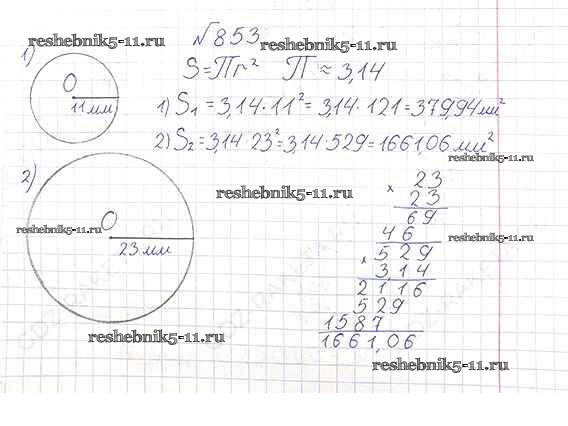 №853
reshebnik5-11.ru
1)
O
11 мм
S=Пr² П≈3,14
1) S₁=3,14·11²=3,14·121=379,94мм²
2) S₂=3,14·23²=3,14·529=1661,06мм²
reshebnik5-11.ru
2)
O
reshebnik5-11.ru
23 мм
reshebnik5-11.ru
× 23
23
69
46
reshebnik5-11.ru
× 529
3,14
2116
529
1587
1661,06
reshebnik5-11.ru
reshebnik5-11.ru